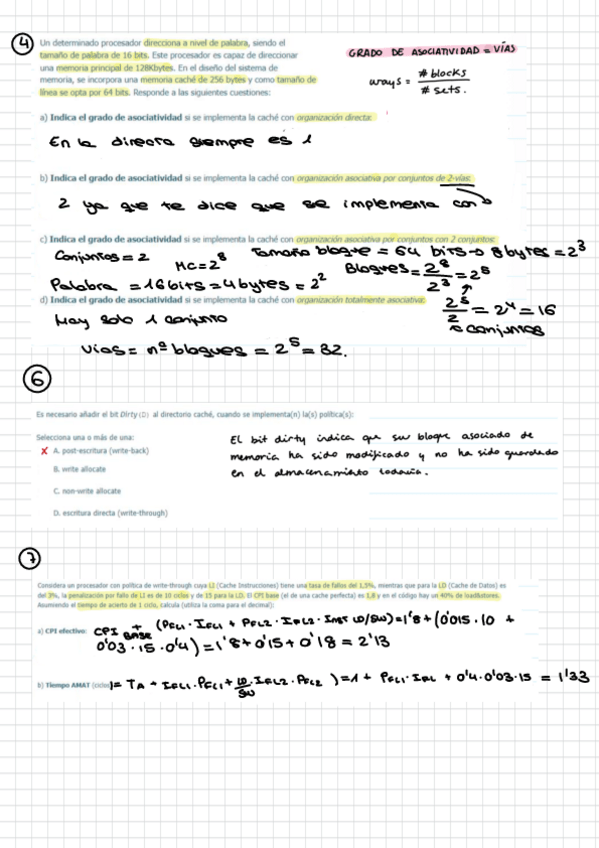 4
Un determinado procesador direcciona a nivel de palabra, siendo el
tamaño de palabra de 16 bits. Este procesador es capaz de direccionar
una memoria principal de 128Kbytes. En el diseño del sistema de
memoria, se incorpora una memoria caché de 256 bytes y como tamaño de
línea se opta por 64 bits. Responde a las siguientes cuestiones:
GRADO DE ASOCIATIVIDAD = VÍAS
ways = # blocks / # sets.
a) Indica el grado de asociatividad si se implementa la caché con organización directa:
En la directa siempre es 1
b) Indica el grado de asociatividad si se implementa la caché con organización asociativa por conjuntos de 2-vías:
2 ya que te dice que se implementa con
c) Indica el grado de asociatividad si se implementa la caché con organización asociativa por conjuntos con 2 conjuntos:
Conjuntos = 2 MC = 2^8 Tamaño bloque = 64 bits → 8 bytes = 2^3
Palabra = 16 bits = 4 bytes = 2^2 Bloques = 2^8 / 2^3 = 2^5
2^5 / 2 = 2^4 = 16
conjuntos
d) Indica el grado de asociatividad si se implementa la caché con organización totalmente asociativa:
Hay solo 1 conjunto
Vías = nº bloques = 2^5 = 32.
6
Es necesario añadir el bit Dirty (D) al directorio caché, cuando se implementa(n) la(s) política(s):
Selecciona una o más de una:
X A. post-escritura (write-back)
B. write allocate
C. non-write allocate
D. escritura directa (write-through)
El bit dirty indica que su bloque asociado de
memoria ha sido modificado y no ha sido guardado
en el almacenamiento todavía.
7
Considera un procesador con política de write-through cuya LI (Cache Instrucciones) tiene una tasa de fallos del 1,5%, mientras que para la LD (Cache de Datos) es
del 3%, la penalización por fallo de LI es de 10 ciclos y de 15 para la LD. El CPI base (el de una cache perfecta) es 1,8 y en el código hay un 40% de load/stores.
Asumiendo el tiempo de acierto de 1 ciclo, calcula (utiliza la coma para el decimal):
a) CPI efectivo: CPI BASE + (PFL1 · IFL1 + PFL2 · IFL2 · Inst LD/SW) = 1'8 + (0'015 · 10 +
0'03 · 15 · 0'4) = 1'8 + 0'15 + 0'18 = 2'13
b) Tiempo AMAT (ciclos) = TA + IFL1 · PFL1 + LD/SW · IFL2 · PFL2 ) = 1 + PFL1 · IFL + 0'4 · 0'03 · 15 = 1'33